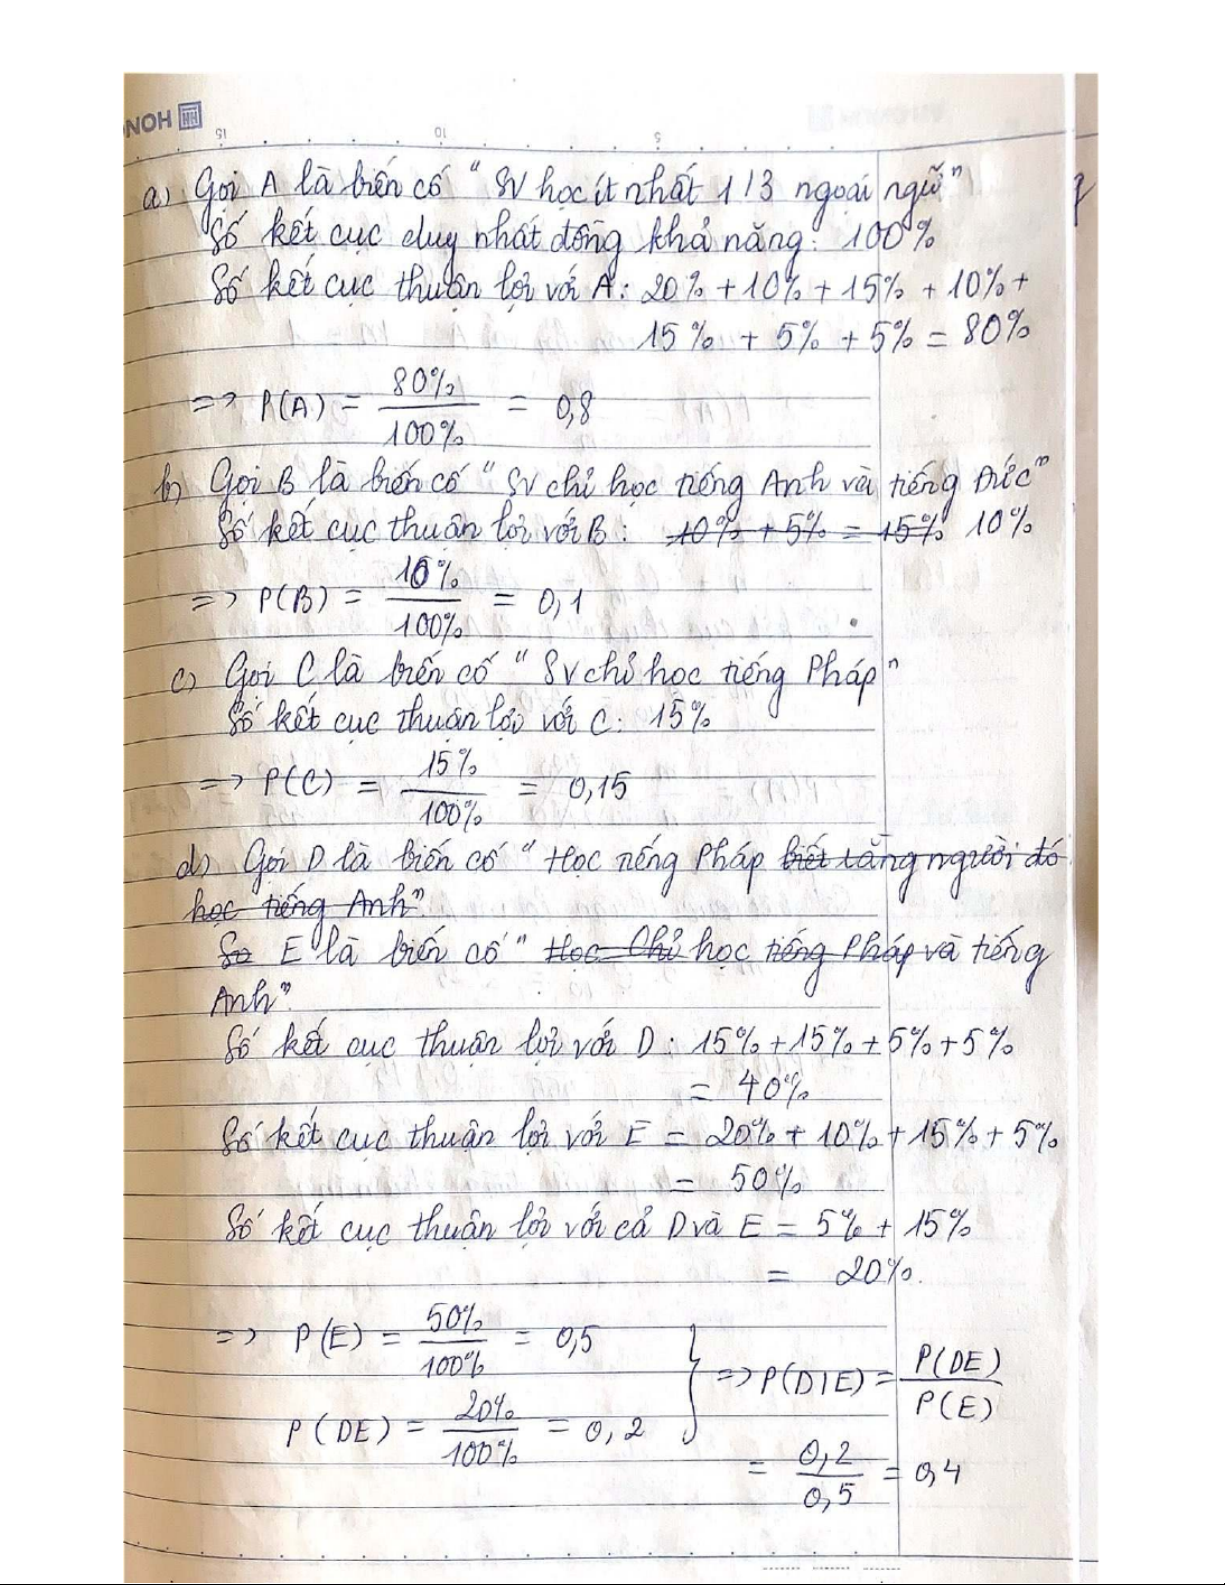 HONG
15 10 5
a) Gọi A là biến cố " SV học ít nhất 1 | 3 ngoại ngữ "
Số kết cục duy nhất đồng khả năng: 100%
Số kết cục thuận lợi với A: 20% + 10% + 15% + 10% +
15% + 5% + 5% = 80%
=> P(A) = 80% / 100% = 0,8
b) Gọi B là biến cố " SV chỉ học tiếng Anh và tiếng Đức "
Số kết cục thuận lợi với B: 10% + 5% = 15% 10%
=> P(B) = 10% / 100% = 0,1
c) Gọi C là biến cố " SV chỉ học tiếng Pháp "
Số kết cục thuận lợi với C: 15%
=> P(C) = 15% / 100% = 0,15
d) Gọi D là biến cố " Học tiếng Pháp biết rằng người đó
học tiếng Anh "
Số E là biến cố " Học Chỉ học tiếng Pháp và tiếng
Anh "
Số kết cục thuận lợi với D: 15% + 15% + 5% + 5%
= 40%
Số kết cục thuận lợi với E = 20% + 10% + 15% + 5%
= 50%
Số kết cục thuận lợi với cả D và E = 5% + 15%
= 20%.
=> P(E) = 50% / 100% = 0,5
P(DE) = 20% / 100% = 0,2
=> P(D|E) = P(DE) / P(E)
= 0,2 / 0,5 = 0,4